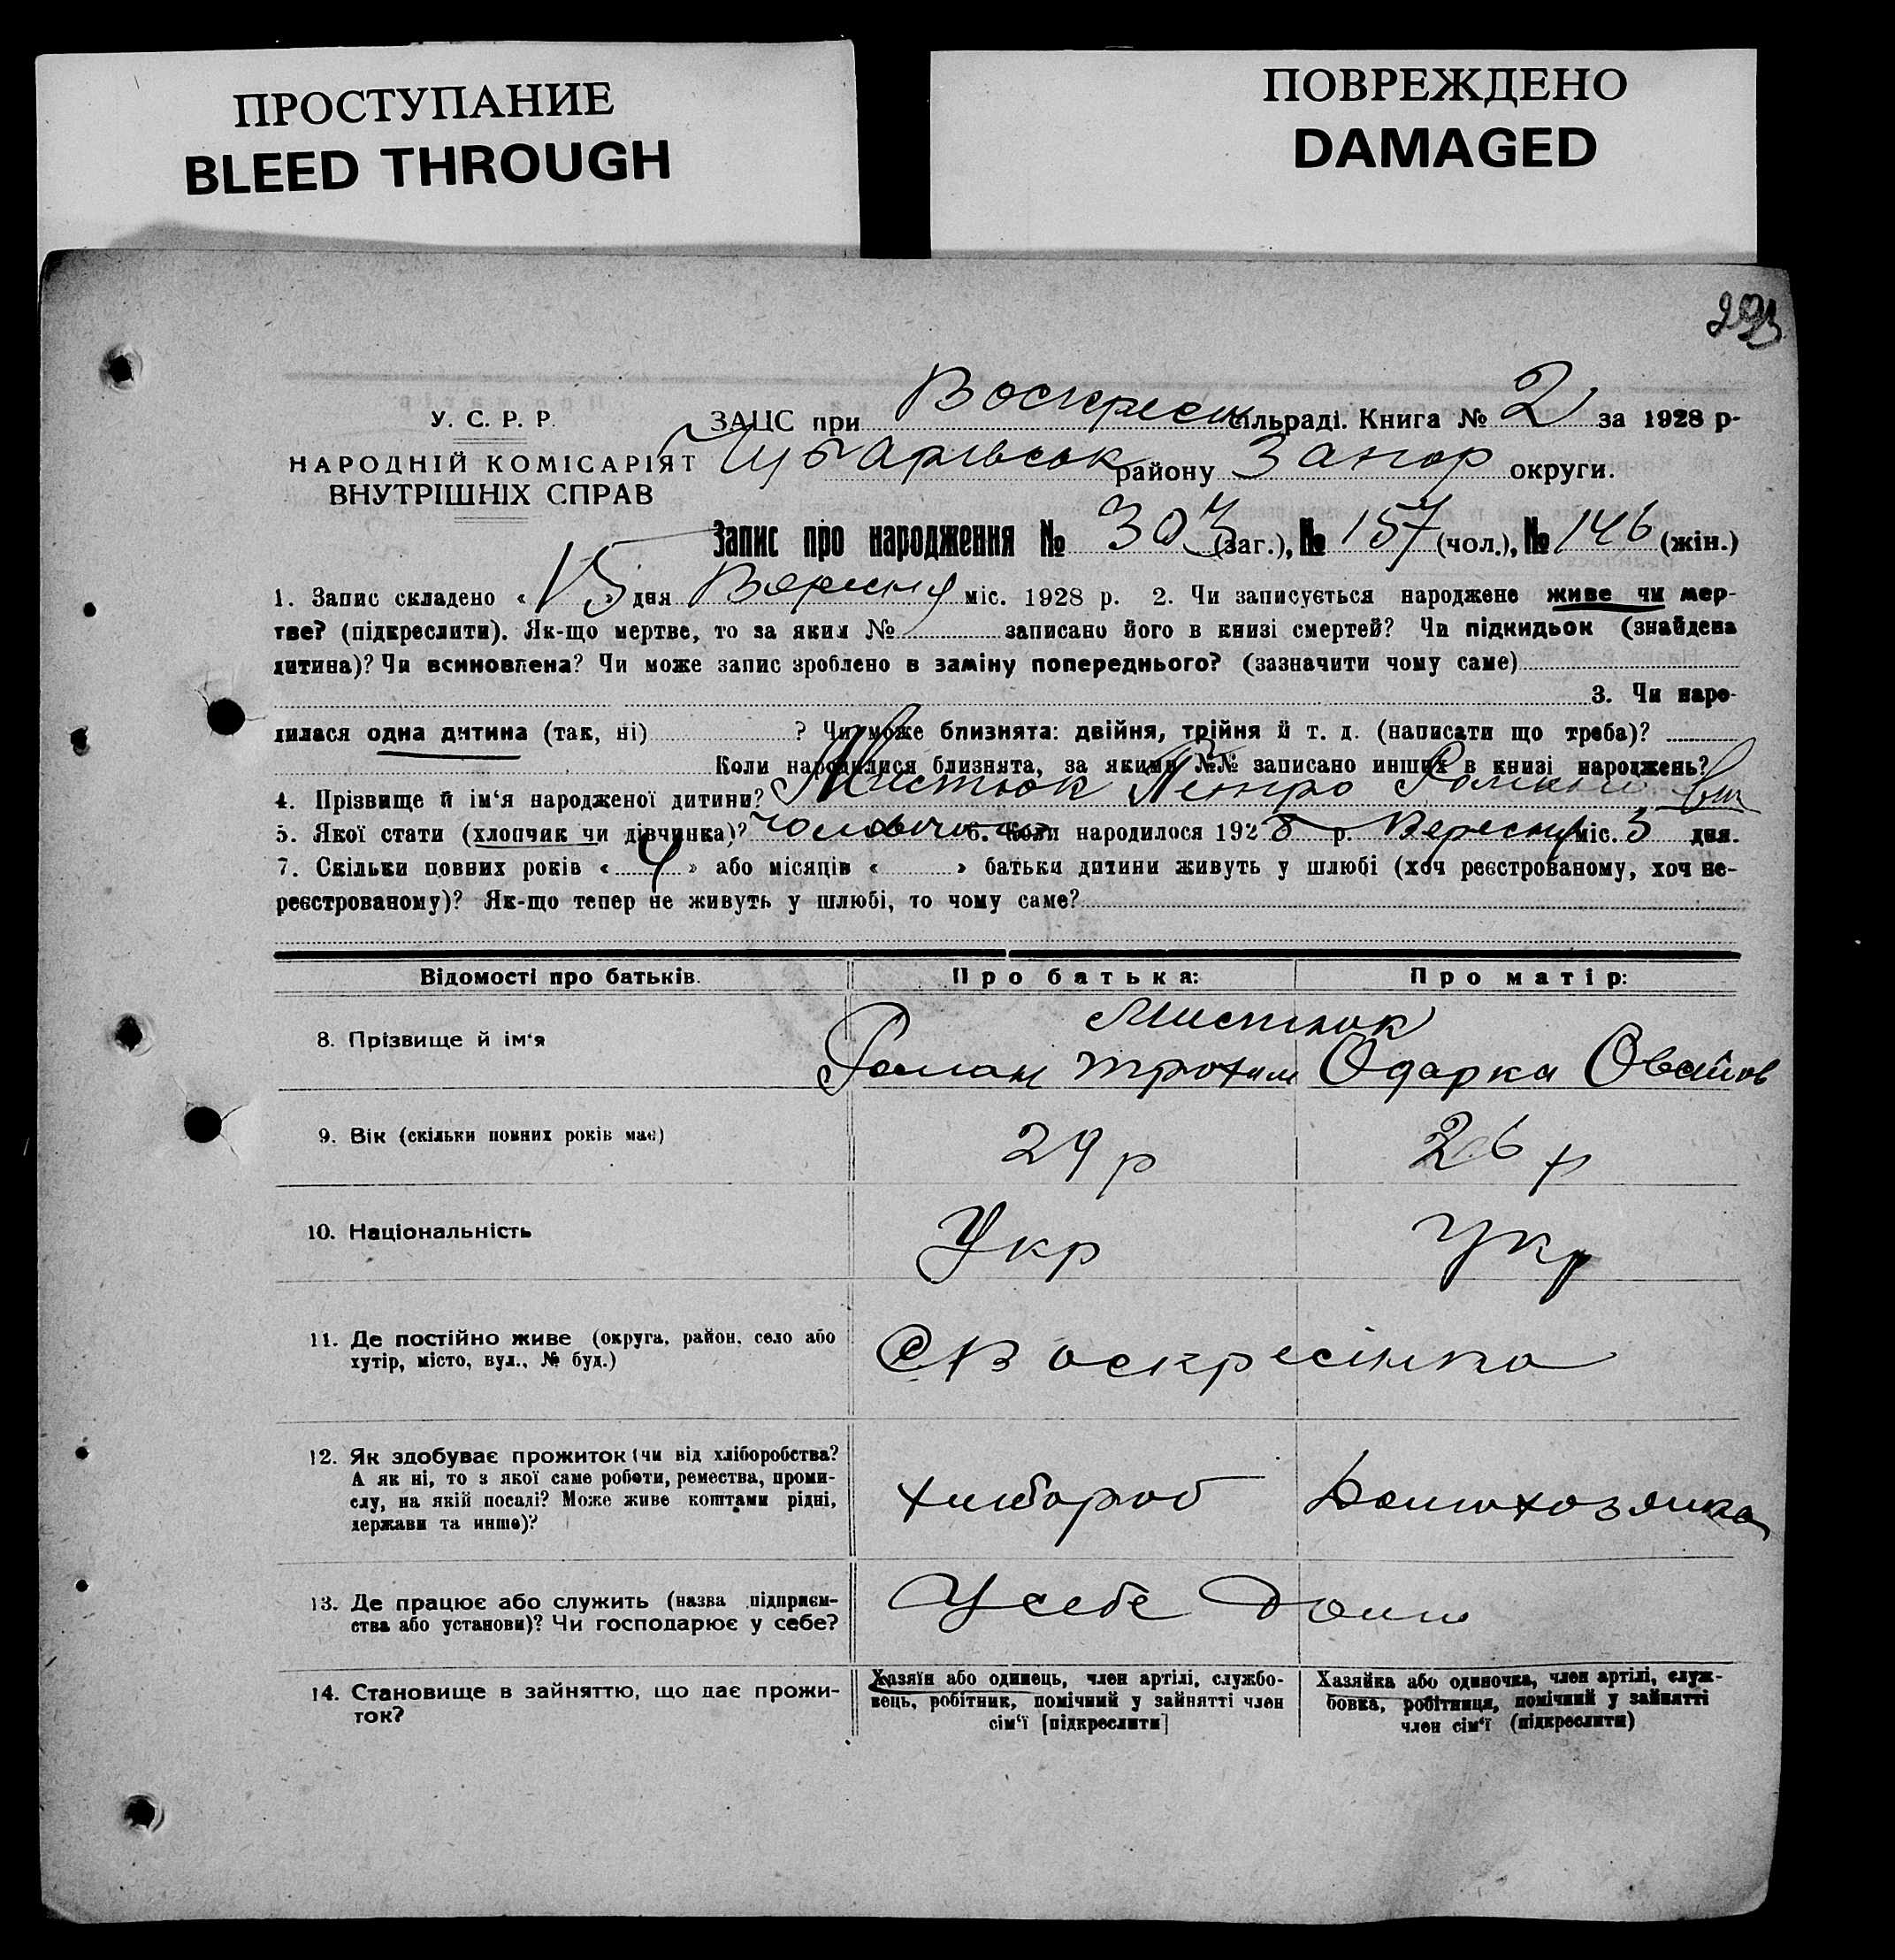 ПРОСТУПАНИЕ
BLEED THROUGH
ПОВРЕЖДЕНО
DAMAGED
293
У. С. Р. Р.
НАРОДНІЙ КОМІСАРІЯТ
ВНУТРІШНІХ СПРАВ
ЗАЦС при Воскресен сільраді. Книга № 2 за 1928 р-
Чубарівськ району Запор округи.
Запис про народження № 303 (заг.), № 157 (чол.), № 146 (жін.)
1. Запис складено « 15 » дня Вересня міс. 1928 р. 2. Чи записується народжене живе чи мер-
тве? (підкреслити). Як-що мертве, то за яким № записано його в книзі смертей? Чи підкидьок (знайдена
дитина)? Чи всиновлена? Чи може запис зроблено в заміну попереднього? (зазначити чому саме)
3. Чи наро-
дилася одна дитина (так, ні) ? Чи може близнята: двійня, трійня й т. д. (написати що треба)?
Коли народилися близнята, за якими №№ записано инших в книзі народжень?
4. Прізвище й ім‘я народженої дитини? Мистюк Петро Роман вич
5. Якої стати (хлопчик чи дівчинка)? 6. Коли народилося 1928 р. Вересня міс. 5 дня.
7. Скільки повних років « 4 » або місяців « » батьки дитини живуть у шлюбі (хоч реєстрованому, хоч не-
реєстрованому)? Як-що тепер не живуть у шлюбі, то чому саме?
Відомості про батьків. Про батька: Про матір:
8. Прізвище й ім‘я
Мистюк
Роман Трохим Одарка
9. Вік (скільки повних років має) 29 р 26 р
10. Національність Укр Укр
11. Де постійно живе (округа, район, село або
хутір, місто, вул., № буд.)
С Воскресінка
12. Як здобуває прожиток (чи від хліборобства?
А як ні, то з якої саме роботи, ремества, проми-
слу, на якій посаді? Може живе коштами рідні,
держави та инше)?
хлібороб Домохозяйка
13. Де працює або служить (назва підприєм-
ства або установи)? Чи господарює у себе?
У себе Дома
14. Становище в зайняттю, що дає прожи-
ток?
Хазяїн або одинець, член артілі, службо-
вець, робітник, помічний у зайнятті член
сім‘ї [підкреслити]
Хазяйка або одиночка, член артілі, служ-
бовка, робітниця, помічний у зайнятті
член сім‘ї (підкреслити)